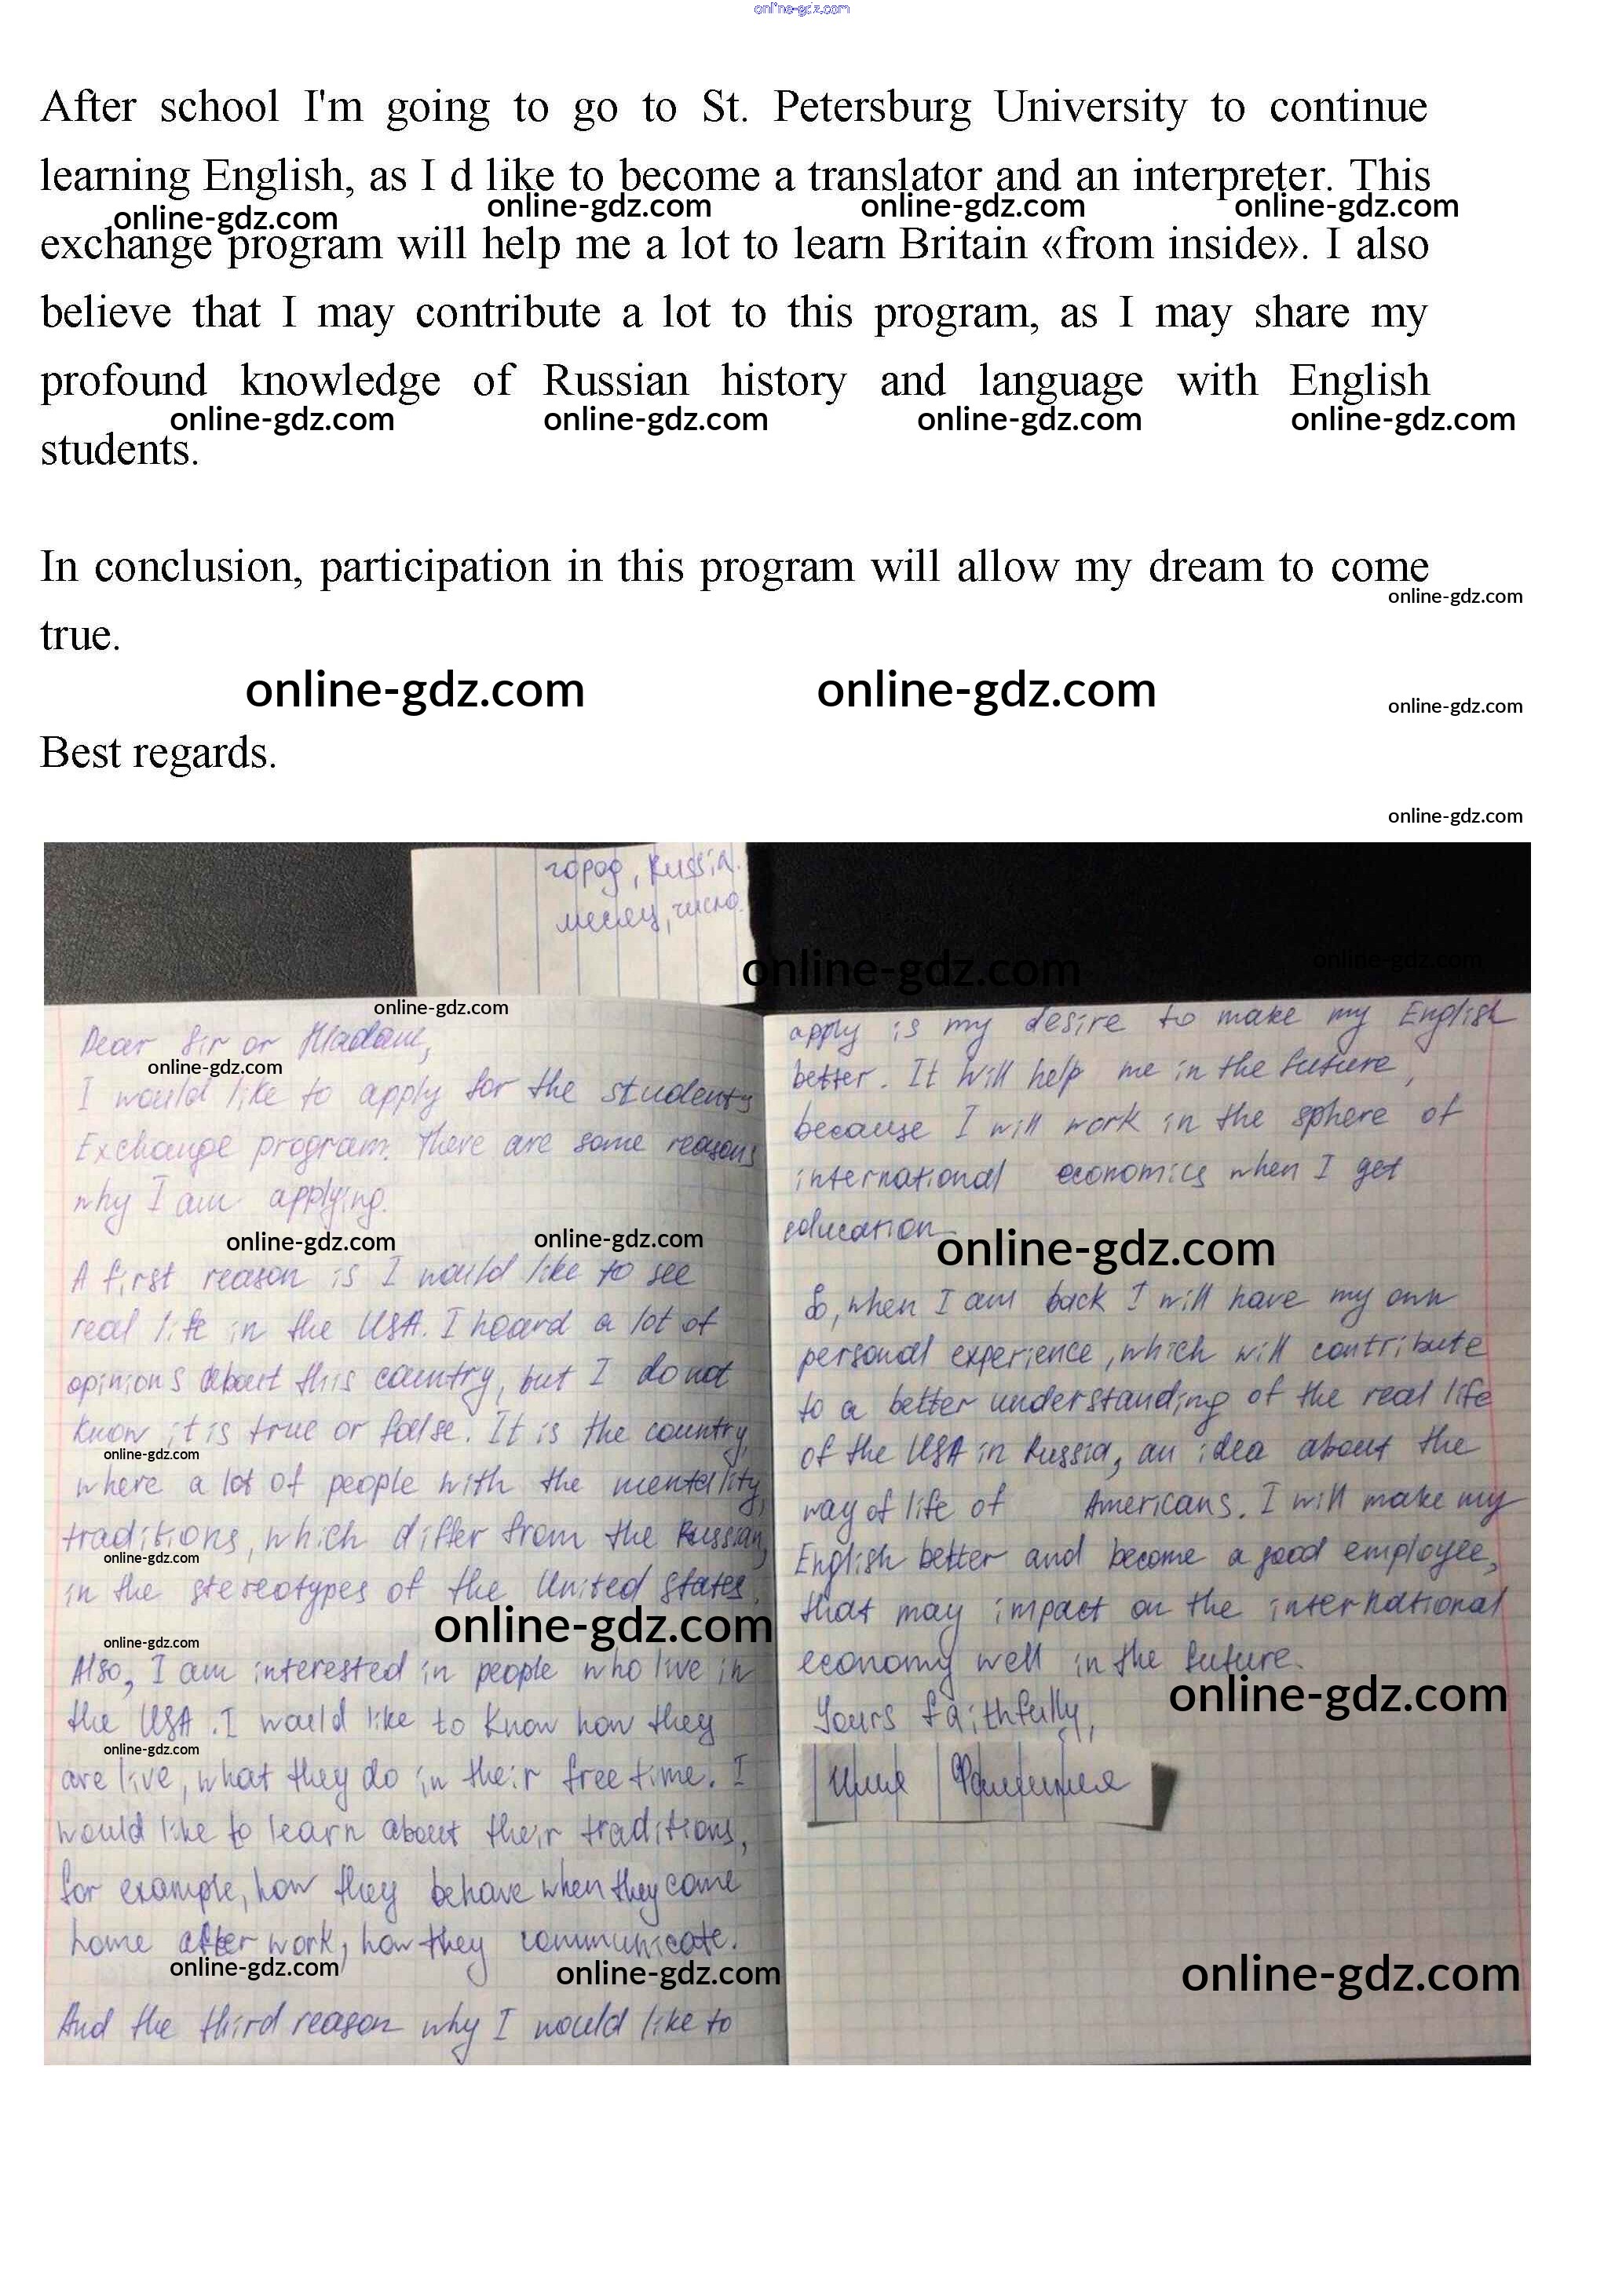 online-gdz.com
After school I'm going to go to St. Petersburg University to continue
learning English, as I d like to become a translator and an interpreter. This
online-gdz.com online-gdz.com online-gdz.com online-gdz.com
exchange program will help me a lot to learn Britain «from inside». I also
believe that I may contribute a lot to this program, as I may share my
profound knowledge of Russian history and language with English
online-gdz.com online-gdz.com online-gdz.com online-gdz.com
students.
In conclusion, participation in this program will allow my dream to come
online-gdz.com
true.
online-gdz.com online-gdz.com online-gdz.com
Best regards.
online-gdz.com
город, Russia.
месец, число.
online-gdz.com online-gdz.com
online-gdz.com
Dear Sir or Madam,
online-gdz.com
I would like to apply for the students
Exchange program. There are some reasons
why I am applying.
online-gdz.com online-gdz.com
A first reason is I would like to see
real life in the USA. I heard a lot of
opinions about this country, but I do not
know it is true or false. It is the country,
online-gdz.com
where a lot of people with the mentality,
traditions, which differ from the Russian,
online-gdz.com
in the stereotypes of the United States.
online-gdz.com
online-gdz.com
Also, I am interested in people who live in
the USA. I would like to know how they
online-gdz.com
are live, what they do in their free time. I
would like to learn about their traditions,
for example, how they behave when they come
home after work, how they communicate.
online-gdz.com online-gdz.com
And the third reason why I would like to
apply is my desire to make my English
better. It will help me in the future,
because I will work in the sphere of
international economics when I get
education
online-gdz.com
So, when I am back I will have my own
personal experience, which will contribute
to a better understanding of the real life
of the USA in Russia, an idea about the
way of life of Americans. I will make my
English better and become a good employee,
that may impact on the international
economy well in the future.
online-gdz.com
Yours faithfully,
Имя Фамилия
online-gdz.com